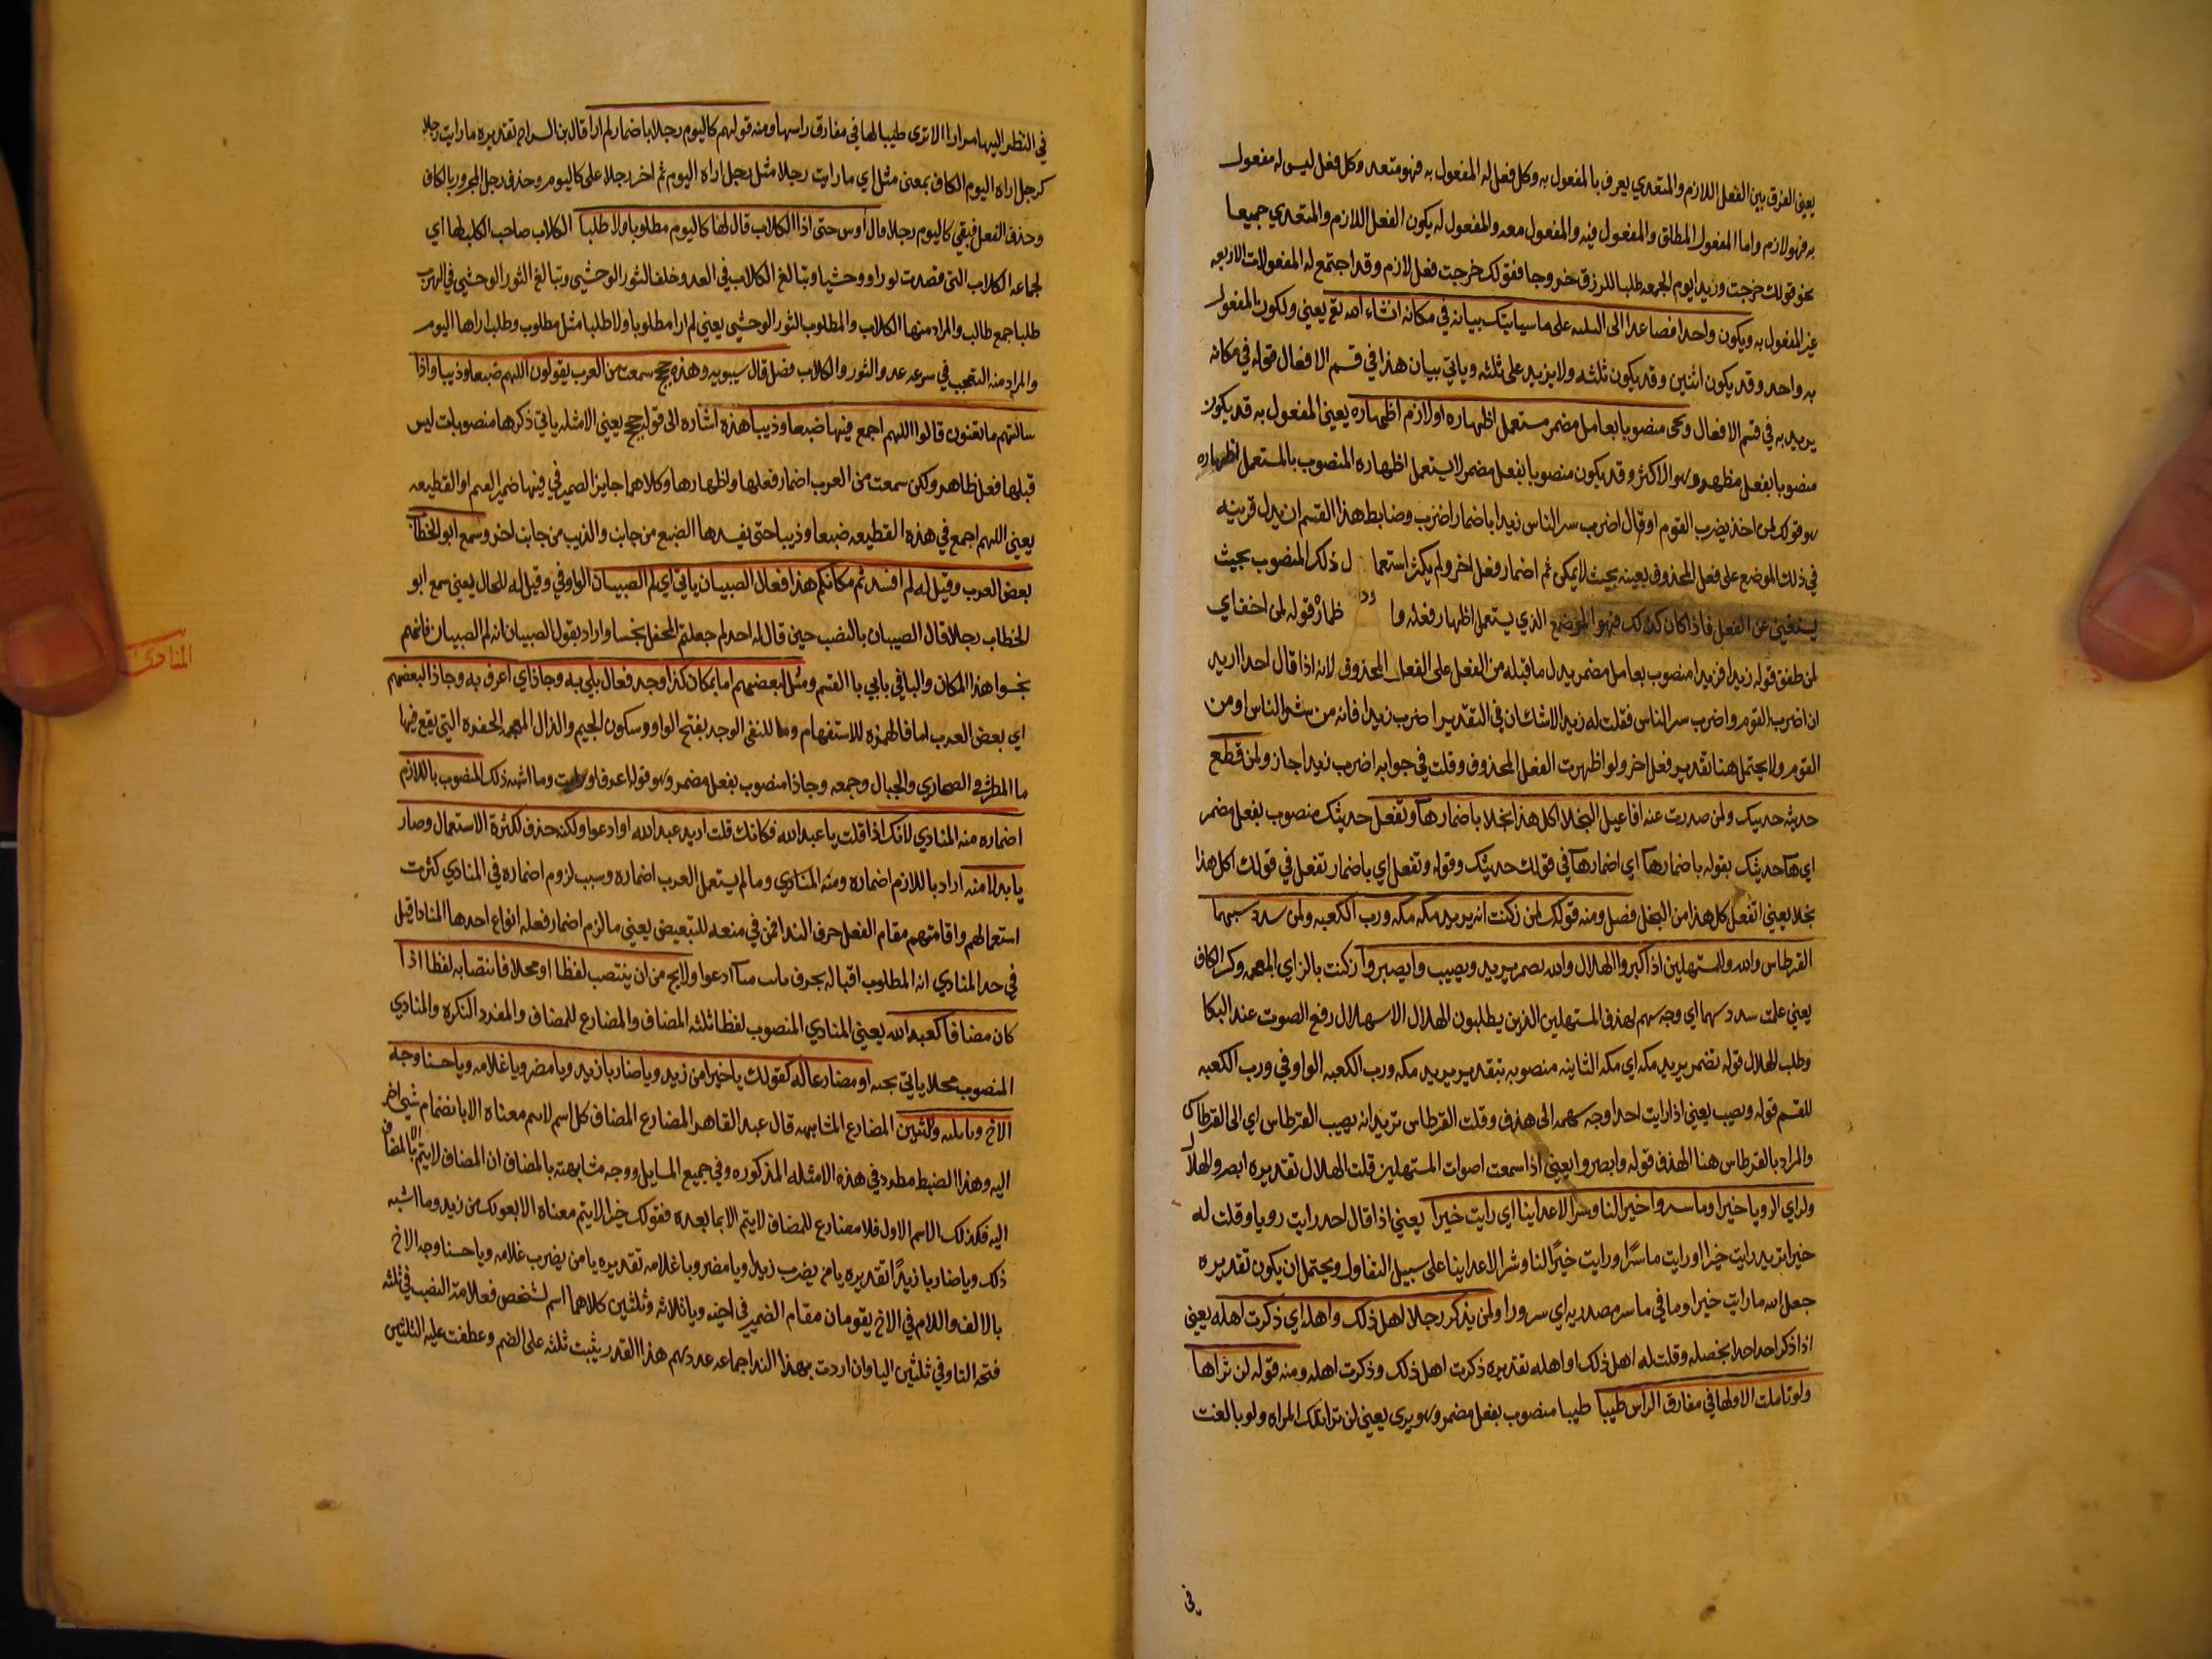 يعني الفرق بين الفعل اللازم والمتعدي يعرف بالمفعول به وكل فعل له المفعول به فهو متعد وكل فعل ليس له مفعول
به فهو لازم واما المفعول المطلق والمفعول فيه والمفعول معه والمفعول له يكون الفعل اللازم والمتعدي جميعا
نحو قولك خرجت وزيدا يوم الجمعه طلبا للرزق خروجا فقولك خرجت فعل لازم وقد اجتمع له المفعولات الاربعه
غير المفعول به ويكون واحدا فصاعدا الى الثلثه على ما سياتيك بيانه في مكانه انشاء الله تع يعني ولكون المفعول
به واحد وقد يكون اثنين وقد يكون ثلثه ولا يزيد على ثلثه وياتي بيان هذا في قسم الافعال قوله في مكانه
يريد به في قسم الافعال ويجى منصوبا بعامل مضمر مستعمل اظهاره او لازم اظهاره يعني المفعول به قد يكون
منصوبا بفعل مظهر وهو الاكثر وقد يكون منصوبا بفعل مضمر لا يستعمل اظهاره المنصوب بالمستعمل اظهاره
هو قولك لمن اخذ يضرب القوم او قال اضرب سر الناس زيدا باضمار اضرب وضابط هذا القسم ان يدل قرينه
في ذلك الموضع على فعل المحذوف بعينه بحيث لا يمكن ثم اضمار فعل اخر ولم يكثر استعما ل ذلك المنصوب بحيث
يستغنى عن الفعل فاذا كان كذلك فهو الموضع الذي يستعمل اظهار فعله وا ظماره قوله لمن اخذ اي
لمن طفق قوله زيدا فزيدا منصوب بعامل مضمر يدل ما قبله من الفعل على الفعل المحذوف لانه اذا قال احد اريد
ان اضرب القوم واضرب سر الناس فقلت له زيدا لاشك ان في التقدير اضرب زيدا فانه من شر الناس او من
القوم ولا يحتمل هنا تقدير فعل اخر ولو اظهرت الفعل المحذوف وقلت في جوابه اضرب زيدا جاز ولمن قطع
حديثه حديثك ولمن صدرت عنه افاعيل البخلا اكل هذا بخلا باضمار هات وتفعل حديثك منصوب بفعل مضمر
اي هات حديثك بقوله باضمار هات اي اضمار هات في قولك حديثك وقوله وتفعل اي باضمار تفعل في قولك اكل هذا
بخلا يعني اتفعل كل هذا من البخل فصل ومنه قولك لمن زكنت انه يريد مكه مكه ورب الكعبه ولمن سدد سهما
القرطاس والله وللمستهلين اذا كبروا الهلال والله تضمر يريد ويصيب وابصروا زكنت بالزاي المعجمه وكسر الكاف
يعني علمت سدد سهما اي وجه سهم لهذف المستهلين الذين يطلبون الهلال الاسهلال رفع الصوت عند البكا
وطلب الهلال قوله تضمر يريد مكه اي مكه الثانيه منصوبه بتقدير يريد مكه ورب الكعبه الواو في ورب الكعبه
للقسم قوله ويصيب يعني اذا رايت احدا وجه سهمه الى هذف وقلت القرطاس تريد انه يصيب القرطاس اي الى القرطاس
والمراد بالقرطاس هنا الهذف قوله وابصروا يعني اذا سمعت اصوات المستهلين قلت الهلال تقديره ابصروا الهلال
ولراي الرويا خيرا وما سر وخيرا لنا وشرا لاعداينا اي رايت خيرا يعني اذا قال احد رايت رويا وقلت له
خيرا تريد رايت خيرا او رايت ما سرا ورايت خيرا لنا وشرا لاعداينا على سبيل التفاول ويحتمل ان يكون تقديره
جعل الله ما رايت خيرا وما في ما سر مصدريه اي سرورا ولمن يذكر رجلا اهل ذلك واهله اي ذكرت اهله يعني
اذا ذكر احد احدا بخصله وقلت له اهل ذلك او اهله تقديره ذكرت اهل ذلك وذكرت اهله ومنه قوله لن تراها
ولو تاملت الا ولها في مفارق الراس طيبا طيبا منصوب بفعل مضمر وهو يرى يعني لن ترا تلك المراه ولو بالغت
في
في النظر اليها مرارا الا ترى طيبا لها في مفارق راسها ومنه قولهم كاليوم رجلا باضمار لم ارا قال بن السراج تقديره ما رايت رجلا
كرجل اراه اليوم الكاف بمعنى مثل اي ما رايت رجلا مثل رجل اراه اليوم ثم اخر رجلا على كاليوم وحذف رجل المجرور بالكاف
وحذف الفعل فبقي كاليوم رجلا قال أوس حتى اذا الكلاب قال لها كاليوم مطلوبا ولا طلبا الكلاب صاحب الكلب لها اي
لجماعه الكلاب التي قصدت ثورا ووحشيا وتبالغ الكلاب في العدو خلف الثور الوحشي وتبالغ الثور الوحشي في الهرب
طلبا جمع طالب والمراد منها الكلاب والمطلوب الثور الوحشي يعني لم ارا مطلوبا ولا طلبا مثل مطلوب وطلب اراها اليوم
والمراد منه التعجب في سرعه عدو الثور والكلاب فصل قال سيبويه وهذه حجج سمعت من العرب يقولون اللهم ضبعا وذيبا واذا
سالتهم ما تعنون قالوا اللهم اجمع فيها ضبعا وذيبا هذه اشاره الى قوله حجج يعني الامثله ياتي ذكرها منصوبات ليس
قبلها فعل ظاهر ولكن سمعت من العرب اضمار فعلها واظهارها وكلاهما جايز الضمير في فيها ضمير الغنم او القطيعه
يعني اللهم اجمع في هذه القطيعه ضبعا وذيبا حتى يفسدها الضبع من جانب والذيب من جانب اخر وسمع ابو الخطاب
بعض العرب وقيل له لم افسدتم مكانكم هذا فعال الصبيان بابي اي لم الصبيان الواو في وقيل له للحال يعني سمع ابو
الخطاب رجلا قال الصبيان بالنصب حين قال له احد لم جعلتم المحفل نجسا واراد بقول الصبيان انه لم الصبيان فانهم
نجسوا هذا المكان والبا في بابي با القسم ومثل لبعضهم اما بمكان كذا وجد فعال بلى به وجاذا اي اعرف به وجاذا لبعضهم
اي بعض العرب اما فالهمزه للاستفهام وما للنفى الوجد بفتح الواو وسكون الجيم والذال المعجمه الحفره التي يقع فيها
ما المطر في الصحاري والجبال وجمعه وجاذا منصوب بفعل مضمر وهو قوله اعرف او رايت وما اشبه ذلك المنصوب باللازم
اضماره منه المنادي لانك اذا قلت يا عبد الله فكانك قلت اريد عبد الله او ادعوا ولكنه حذف لكثرة الاستعمال وصار
يا بدلا منه اراد باللازم اضماره ومنه المنادي وما لم يستعمل العرب اضماره وسبب لزوم اضماره في المنادي كثرت
استعمالهم واقامتهم مقام الفعل حرف الندا فمن في منعه للتبعيض يعني ما لزم اضمار فعله انواع احدها المنادا قيل
في حد المنادي انه المطلوب اقباله بحرف ناب مناب ادعوا ولا يخ من ان ينتصب لفظا او محلا فانتصابه لفظا اذا
كان مضافا كعبد الله يعني المنادي المنصوب لفظا ثلثه المضاف والمضارع للمضاف والمفرد النكره والمنادي
المنصوب محلا ياتي بحثه او مضارعا له كقولك يا خيرا من زيد ويا ضاربا زيدا ويا مضروبا غلامه ويا حسنا وجه
الاخ ويا ثلثه وثلثين المضارع المشابهه قال عبد القاهر المضارع المضاف كل اسم لا يتم معناه الا بانضمام شي اخر
اليه وهذا الضبط مطرد في هذه الامثله المذكوره وفي جميع المسايل ووجه مشابهته بالمضاف ان المضاف لا يتم الا بالمضاف
اليه فكذلك الاسم الاول فلا مضارع للمضاف لا يتم الا بما بعده فقولك خيرا لا يتم معناه الا بقولك من زيد وما اشبه
ذلك ويا ضاربا زيدا تقديره يا من يضرب زيدا ويا مضروبا غلامه تقديره يا من يضرب غلامه ويا حسنا وجه الاخ
بالالف واللام في الاخ يقومان مقام الضمير في اخيه ويا ثلاثه وثلثين كلاهما اسم لشخص فعلامة النصب في ثلثه
فتحه التا وفي ثلثين اليا وان اردت بهذا الندا جماعه عددهم هذا القدر يثبت ثلثه على الضم وعطفت عليه الثلثين
المنادى